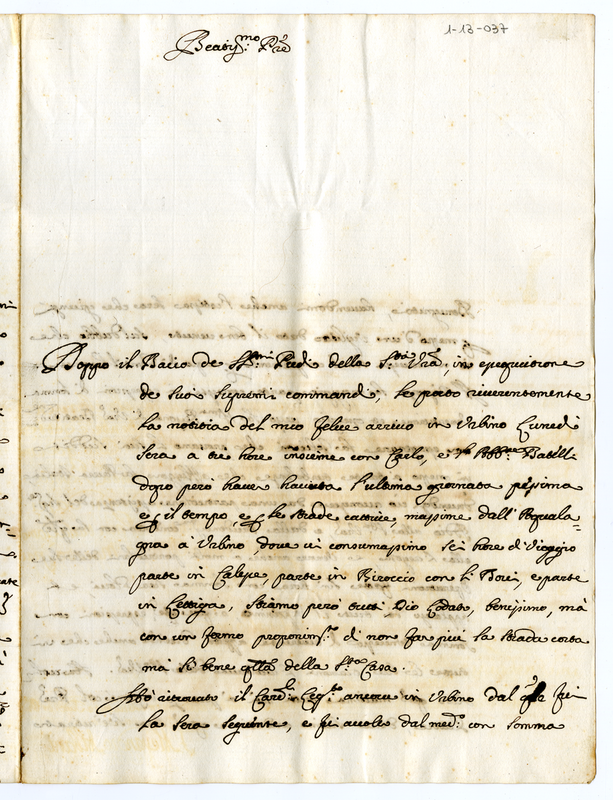 1-13-037
Beatis.mo Pre
Doppo il Bacio de SS.mi Piedi della S.tà Vra, in esequitione
de suoi supremi commandi, le porto riverentemente
la notitia del mio felice arrivo in Urbino Lunedi
sera a tre hore insieme con Carlo, e Babell:
dopo però haver havuta l'ultima giornata pessima
e il tempo, e le strade cattive, massime dall' Acquala=
gna à Urbino, dove vi consumassimo sei hore di viaggio
parte in Calesse, parte in Biroccio con li Bovi, e parte
in Lettiga, stiamo però tutti Dio Lodato, benissimo, mà
con un fermo proponim.to di non far più la strada corta
mà si bene della S.ta Casa.
Hò ritrovato il Card.l Leg.to ancora in Urbino dal fui
la sera seguente, e fui accolto dal med.o con somma